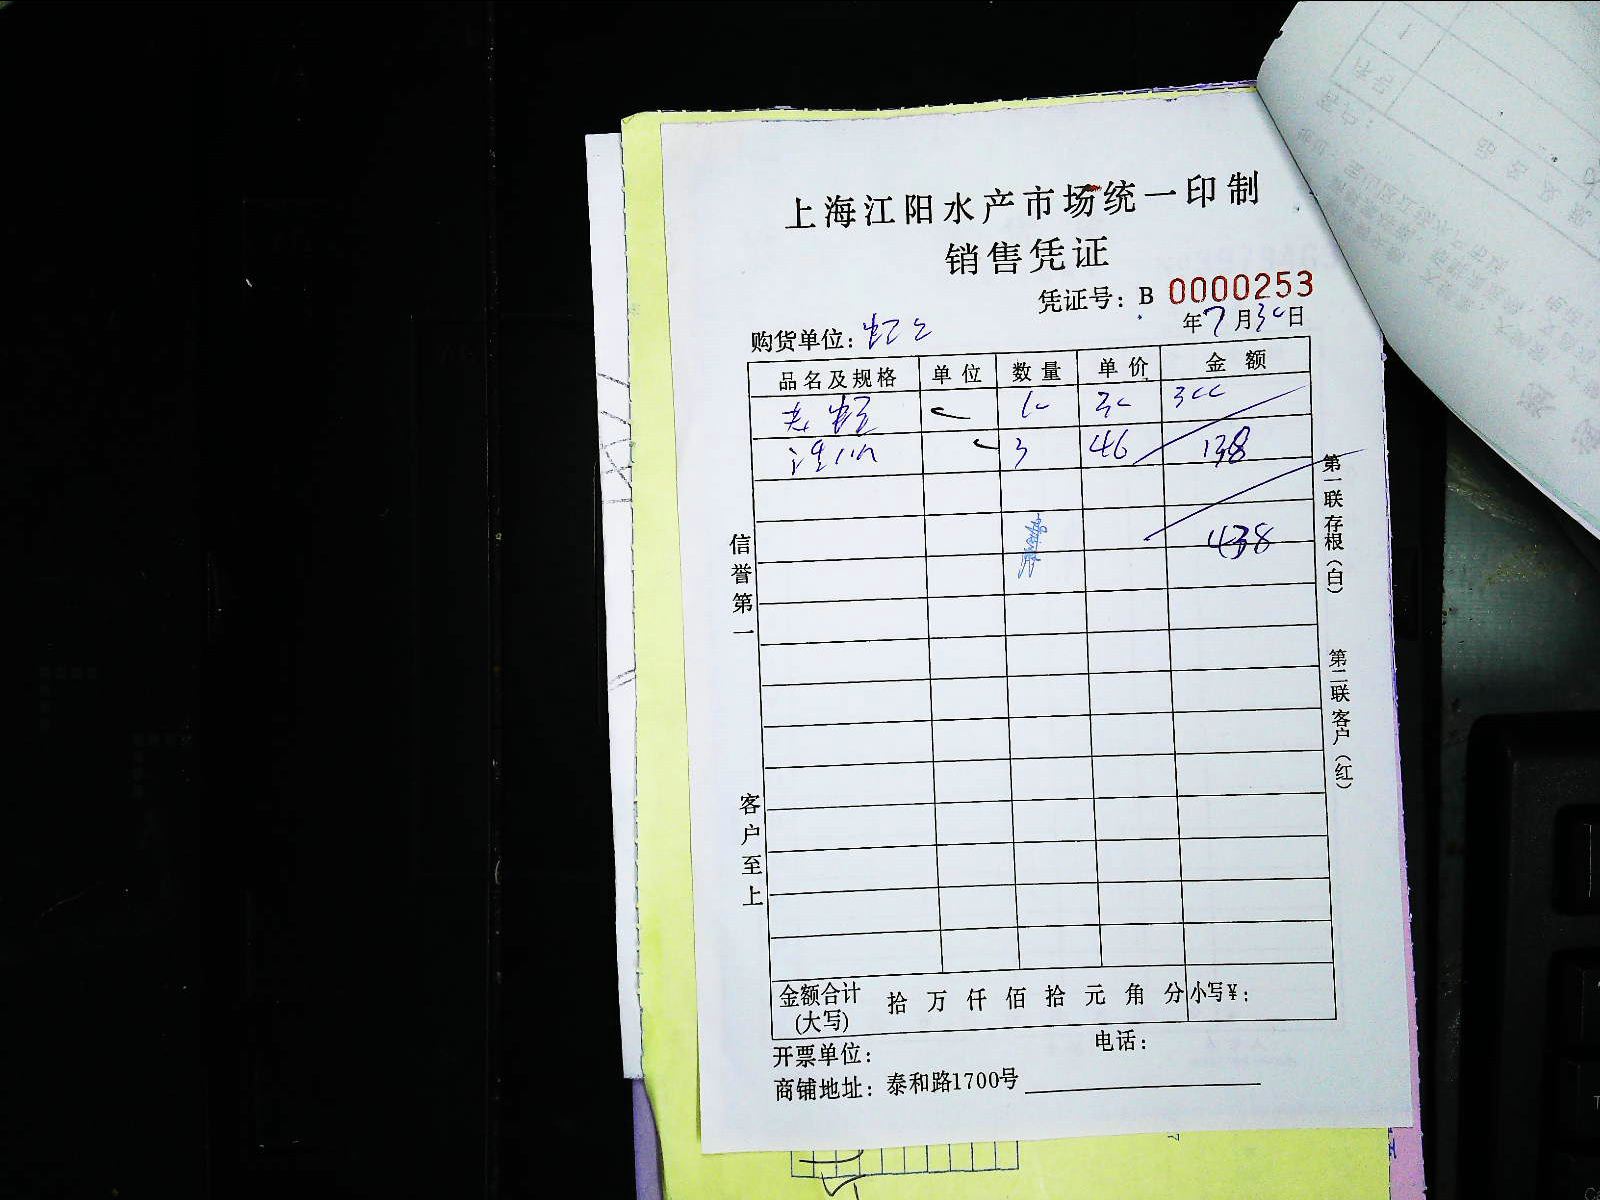 上海江阳水产市场统一印制
销售凭证
凭证号：B 0000253
购货单位： 年7月30日
品名及规格 单位 数量 单价 金额
10 30 300
3 46 138
438
信誉第一
客户至上
第一联存根（白）
第二联客户（红）
金额合计（大写） 拾万仟佰拾元角分 小写¥：
开票单位： 电话：
商铺地址：泰和路1700号